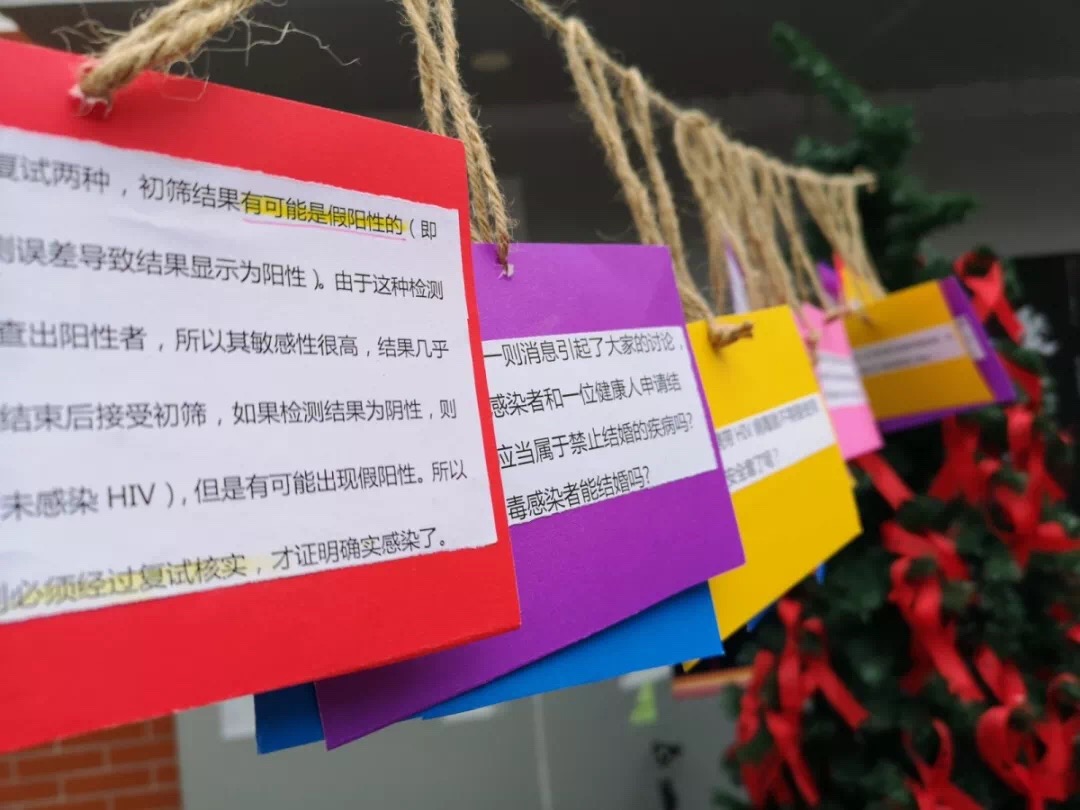 复试两种，初筛结果有可能是假阳性的（即
测误差导致结果显示为阳性）。由于这种检测
查出阳性者，所以其敏感性很高，结果几乎
结束后接受初筛，如果检测结果为阴性，则
未感染 HIV），但是有可能出现假阳性。所以
必须经过复试核实，才证明确实感染了。
一则消息引起了大家的讨论，
感染者和一位健康人申请结
应当属于禁止结婚的疾病吗？
毒感染者能结婚吗？
HIV
安全套了呢？